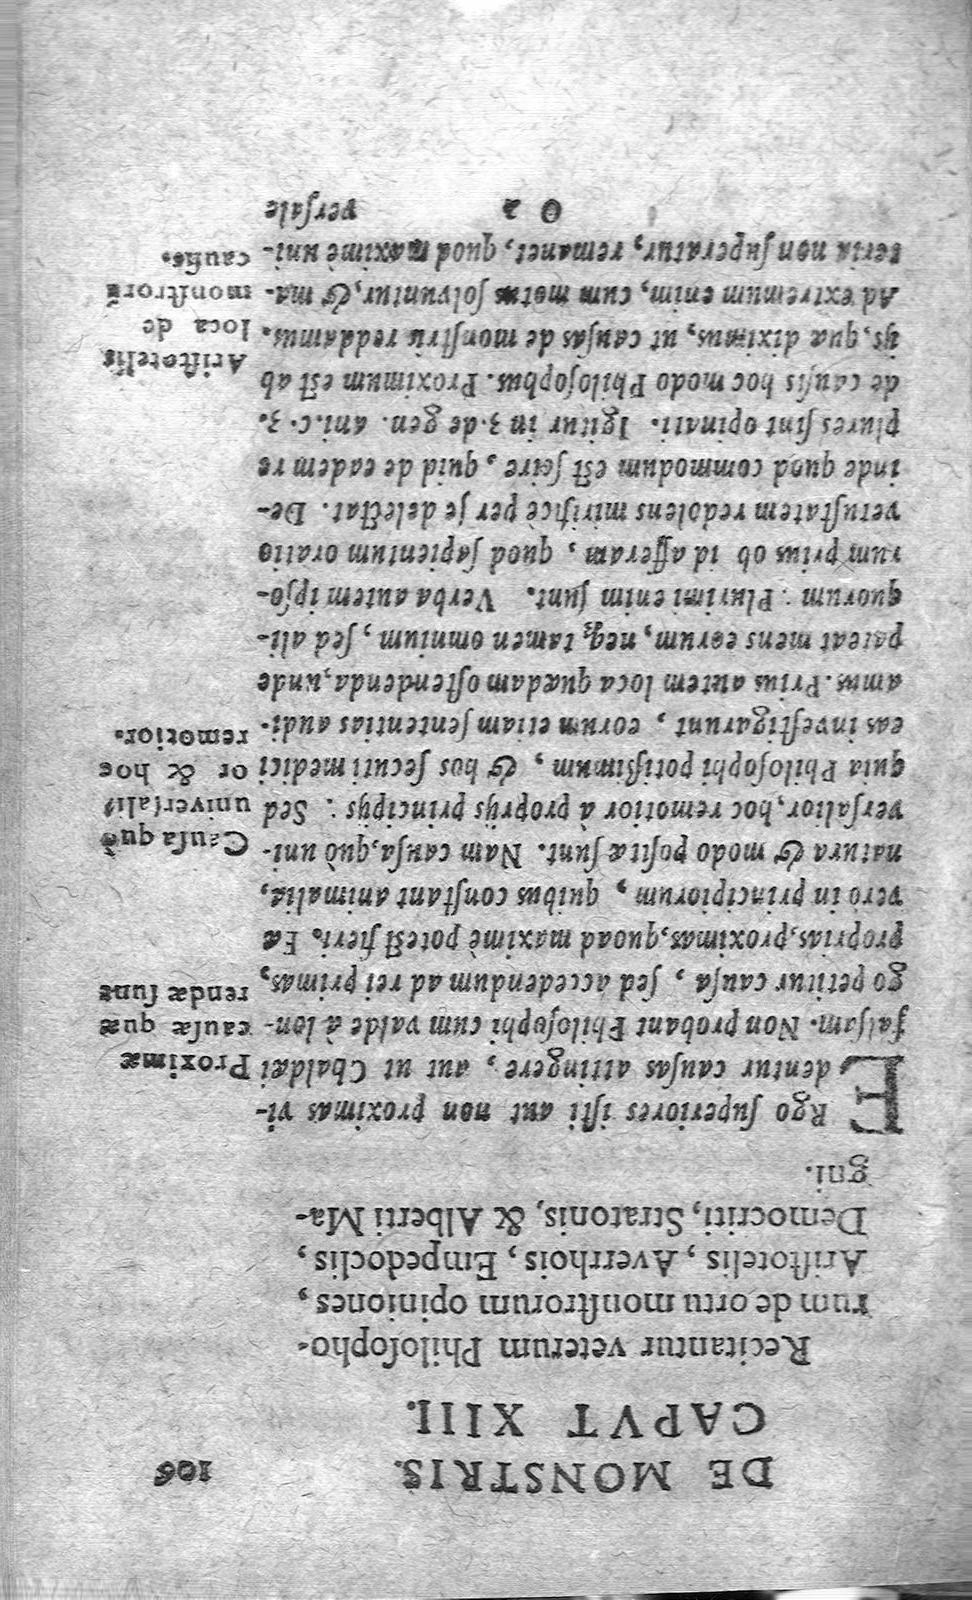 DE MONSTRIS. 106
CAPVT XIII.
Recitantur veterum Philoſopho-
rum de ortu monſtrorum opiniones,
Ariſtotelis, Averrhois, Empedoclis,
Democriti, Stratonis, & Alberti Ma-
gni.
ERgo ſuperiores iſti aut non proximas vi-
dentur cauſas attingere, aut ut Chaldæi
falſam. Non probant Philoſophi cum valde à lon-
go petitur cauſa, ſed accedendum ad rei primas,
proprias, proximas, quoad maximè poteſt fieri. Eæ
verò in principiorum, quibus conſtant animalia,
natura & modo poſitæ ſunt. Nam cauſa, quò uni-
verſalior, hoc remotior à proprijs principijs: Sed
quia Philoſophi potißimum, & hos ſecuti medici
eas inveſtigarunt, eorum etiam ſententias audi-
amus. Prius autem loca quædam oſtendenda, unde
pateat mens eorum, neq; tamen omnium, ſed ali-
quorum: Plurimi enim ſunt. Verba autem ipſo-
rum prius ob id aſſeram, quod ſapientum oratio
vetuſtatem redolens mirificè per ſe delectat. De-
inde quod commodum eſt ſcire, quid de eadem re
plures ſint opinati. Igitur in 3. de gen. ani. c. 3.
de cauſis hoc modo Philoſophus. Proximum eſt ab
ijs, quæ diximus, ut cauſas de monſtris reddamus.
Ad extremum enim, cum motus ſolvuntur, & ma-
teria non ſuperatur, remanet, quod maximè uni-
O 2 verſale
Proximæ
cauſæ quæ
rendæ ſunt
Cauſa quò
univerſali
or & hoc
remotior.
Ariſtotelis
loca de
monſtrorũ
cauſis.